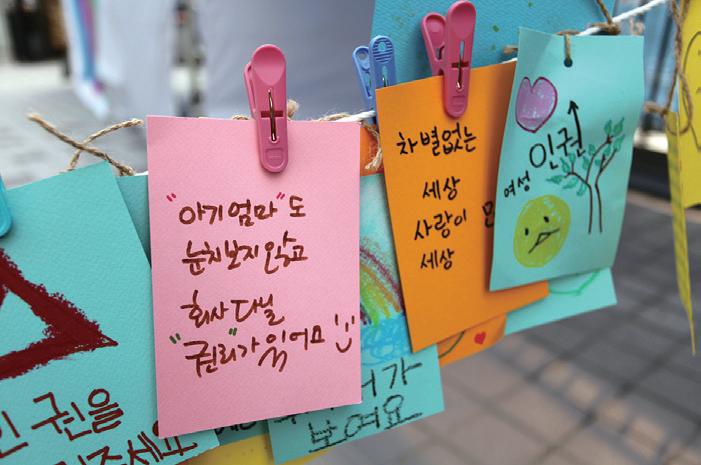 "아기엄마"도
눈치보지않고
회사다닐
"권리"가 있어요
차별없는
세상
사랑이
세상
인권
여성
인권을
보여요